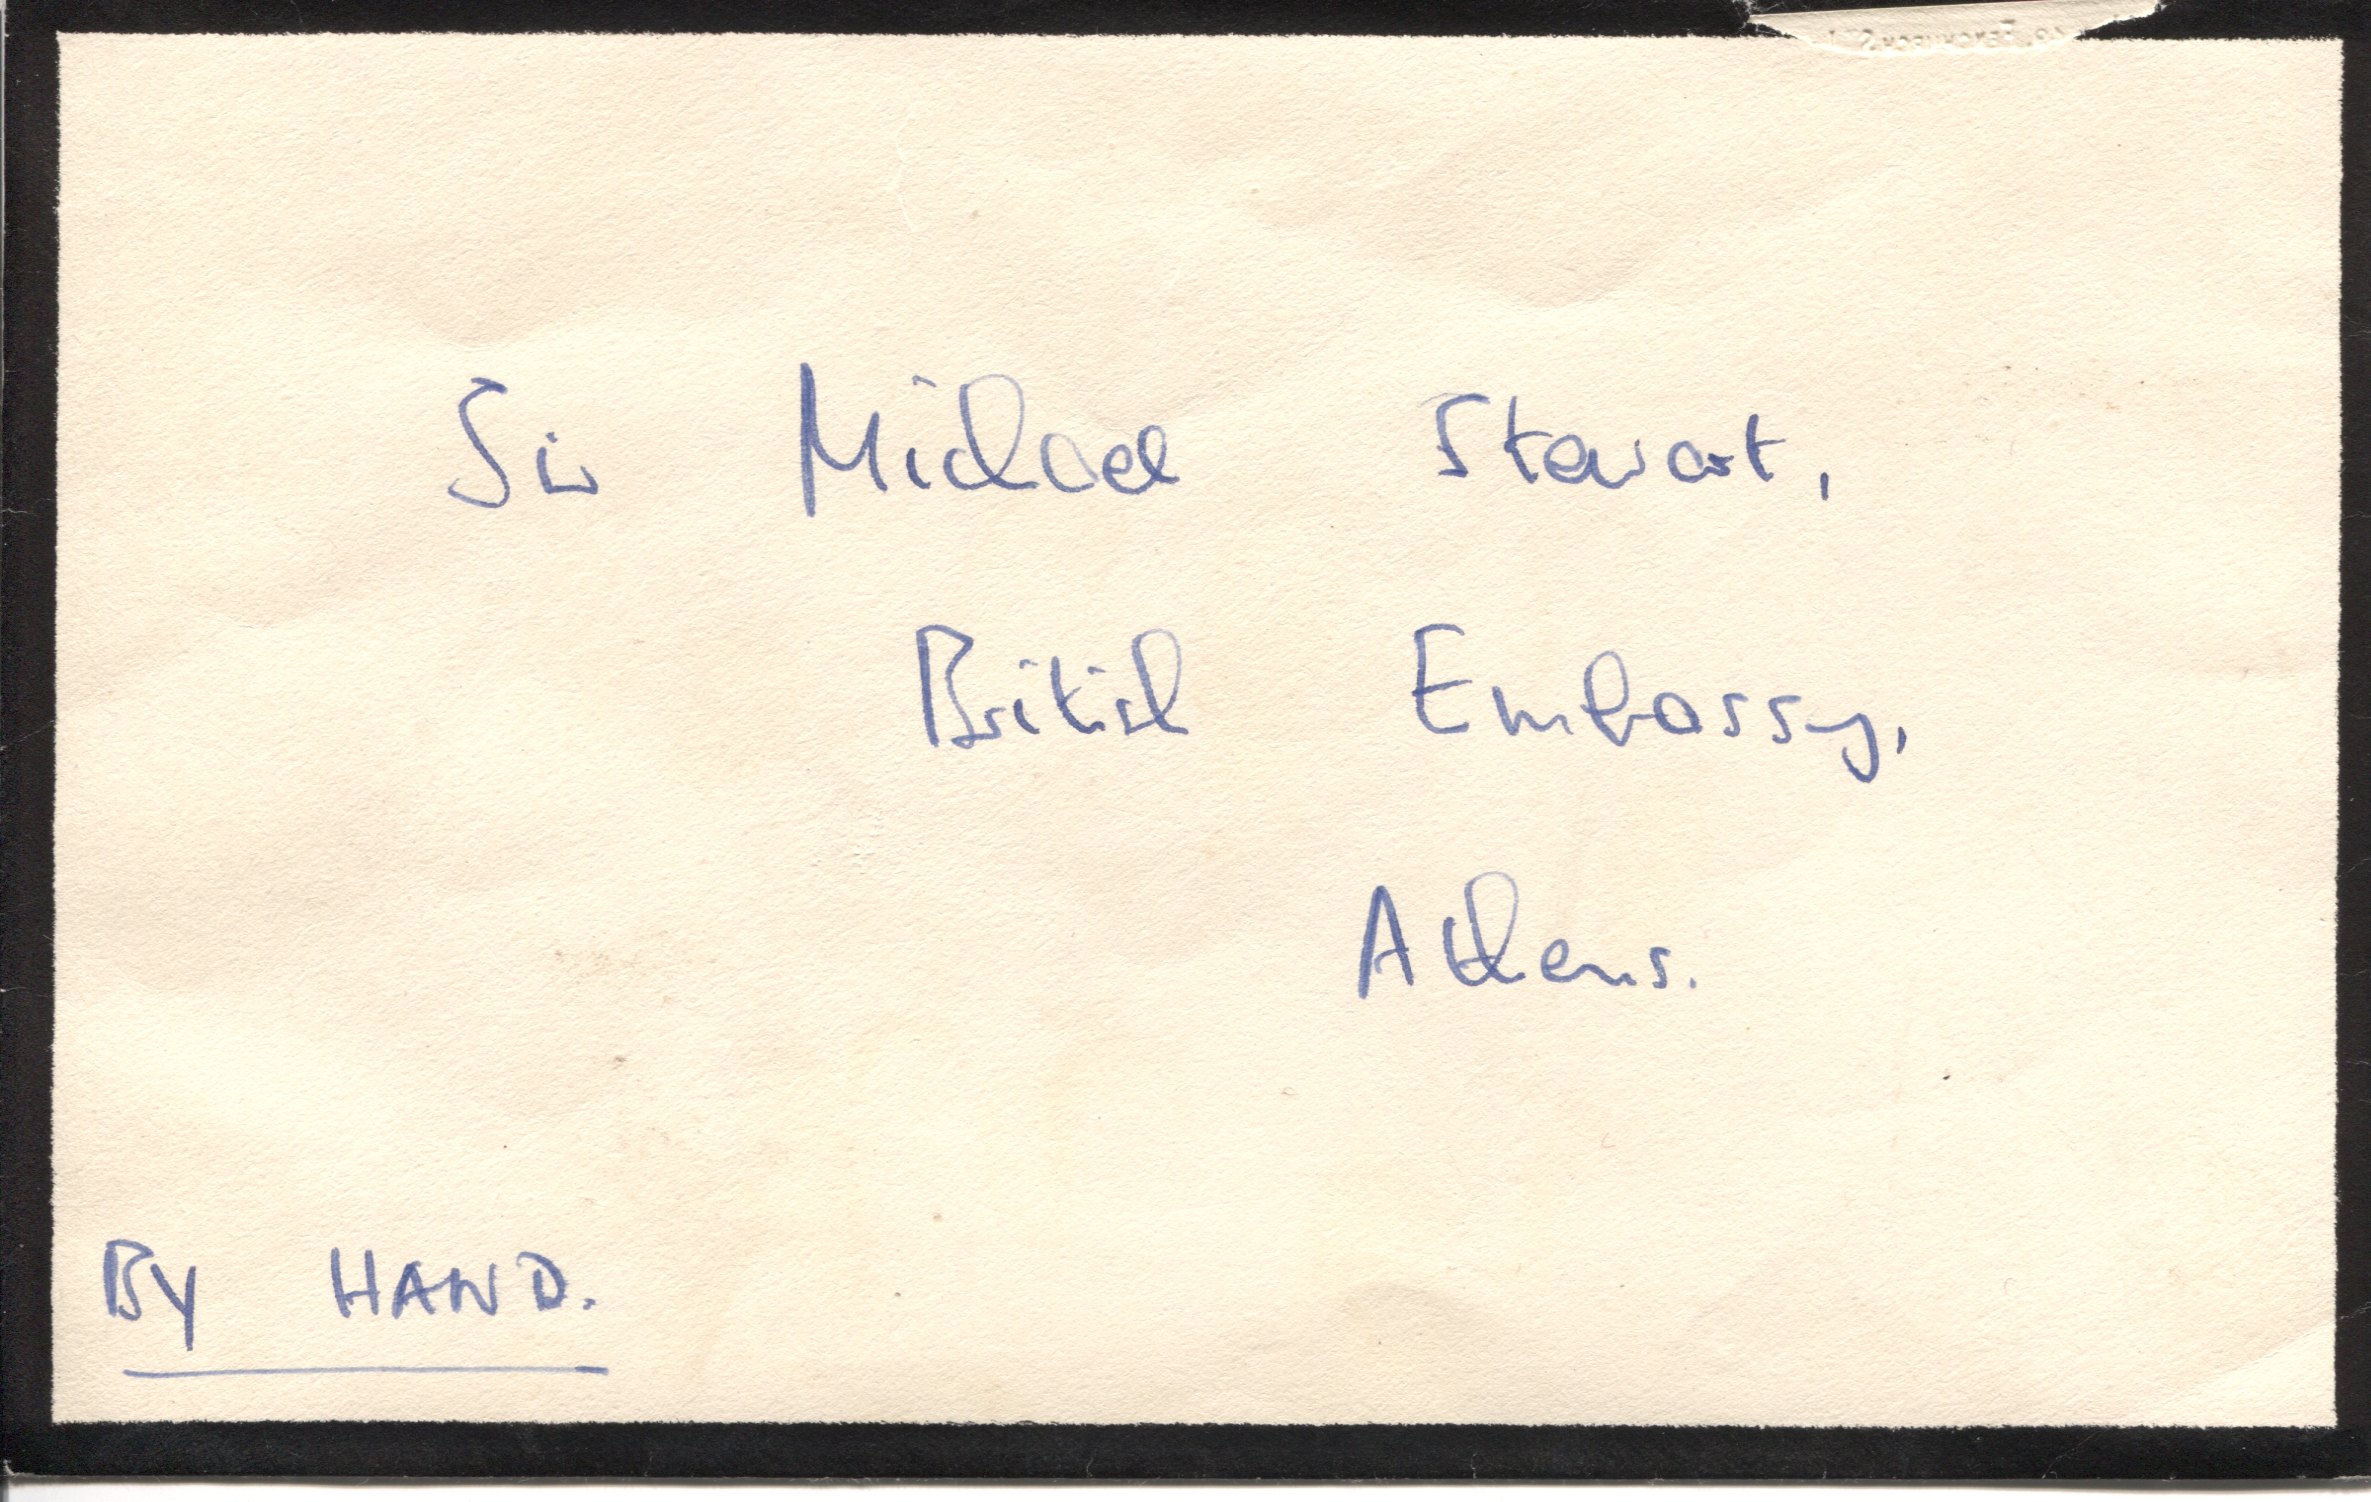 Sir Michael Stewart,
British Embassy,
Athens.
BY HAND.